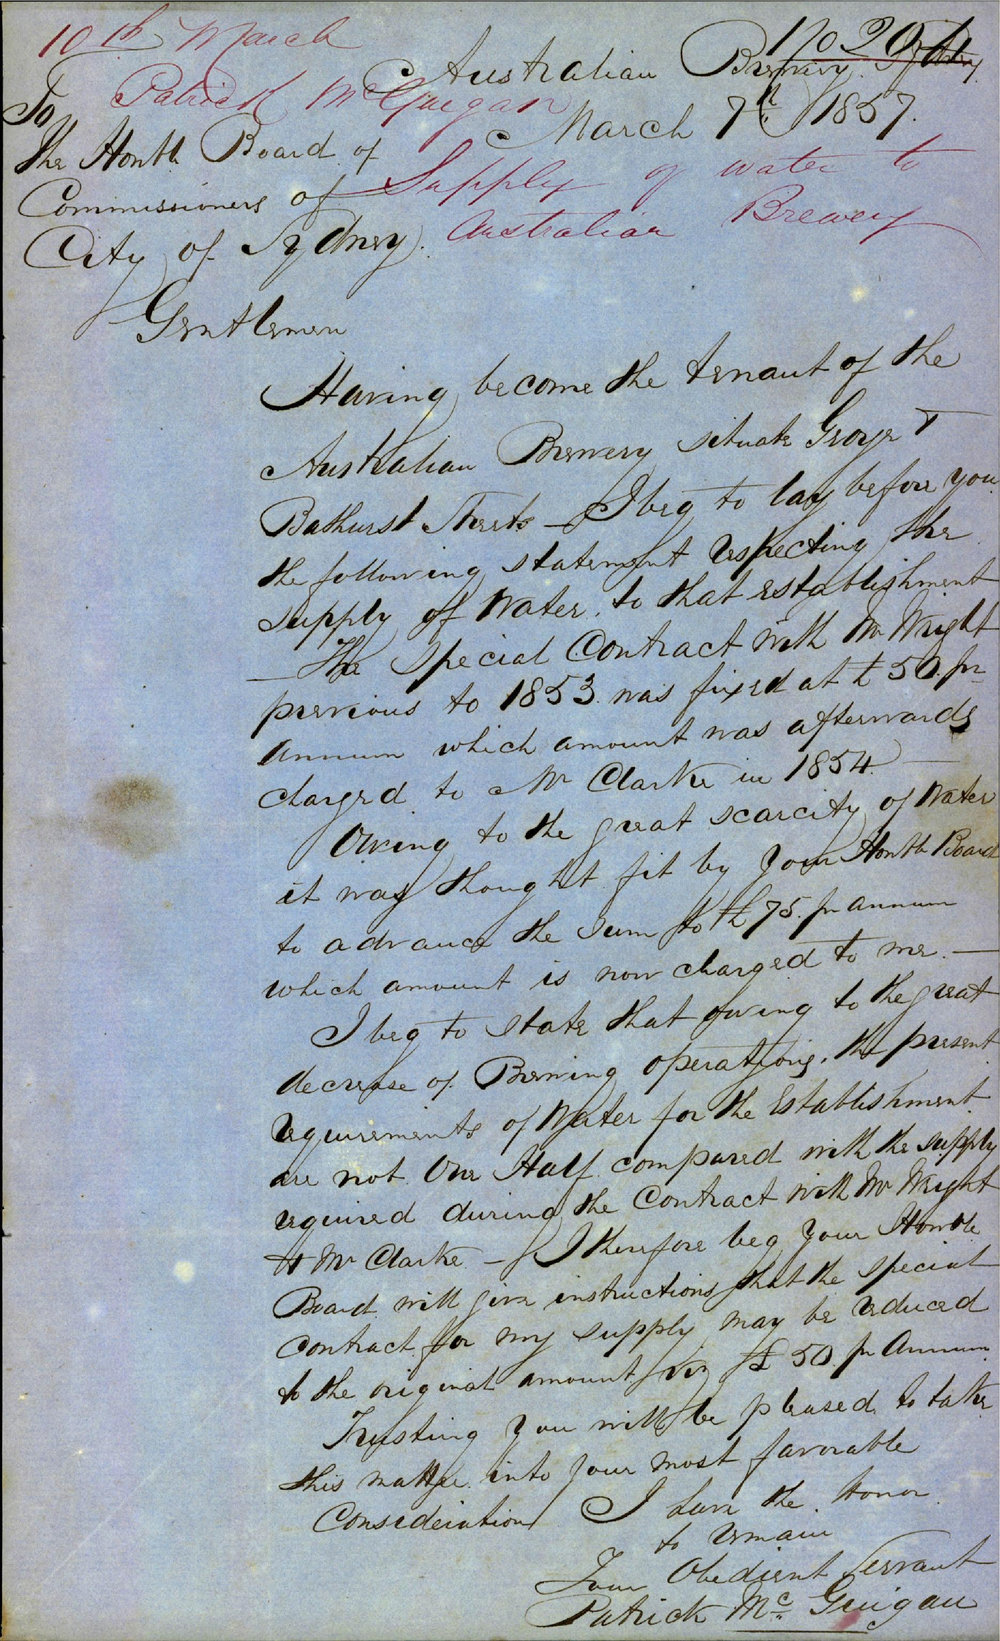 10th March
No 204
Australian Brewery Sydney
Patrick McGuigan
March 7th 1857.
To
The Honble Board of
Supply of water to
Commissioners of
Australian Brewery
City of Sydney.
Gentlemen
Having become the tenant of the
Australian Brewery situate George &
Bathurst Streets — I beg to lay before you
the following statement respecting the
supply of Water to that establishment
— The Special Contract with Mr Wright
previous to 1853 was fixed at £50. pr
Annum which amount was afterwards
charged to Mr Clarke in 1854. —
Owing to the great scarcity of Water
it was thought fit by your Honble Board
to advance the Sum to £75. pr annum
which amount is now charged to me. —
I beg to state that owing to the great
decrease of Brewing operations, the present
requirements of Water for the Establishment
are not One Half compared with the supply
required during the Contract with Mr Wright
& Mr Clarke — I therefore beg your Honble
Board will give instructions that the special
contract for my supply may be reduced
to the original amount viz £50 pr Annum.
Trusting you will be pleased to take
this matter into your most favorable
Consideration I have the honor
to remain
Your Obedient Servant
Patrick Mc Guigan